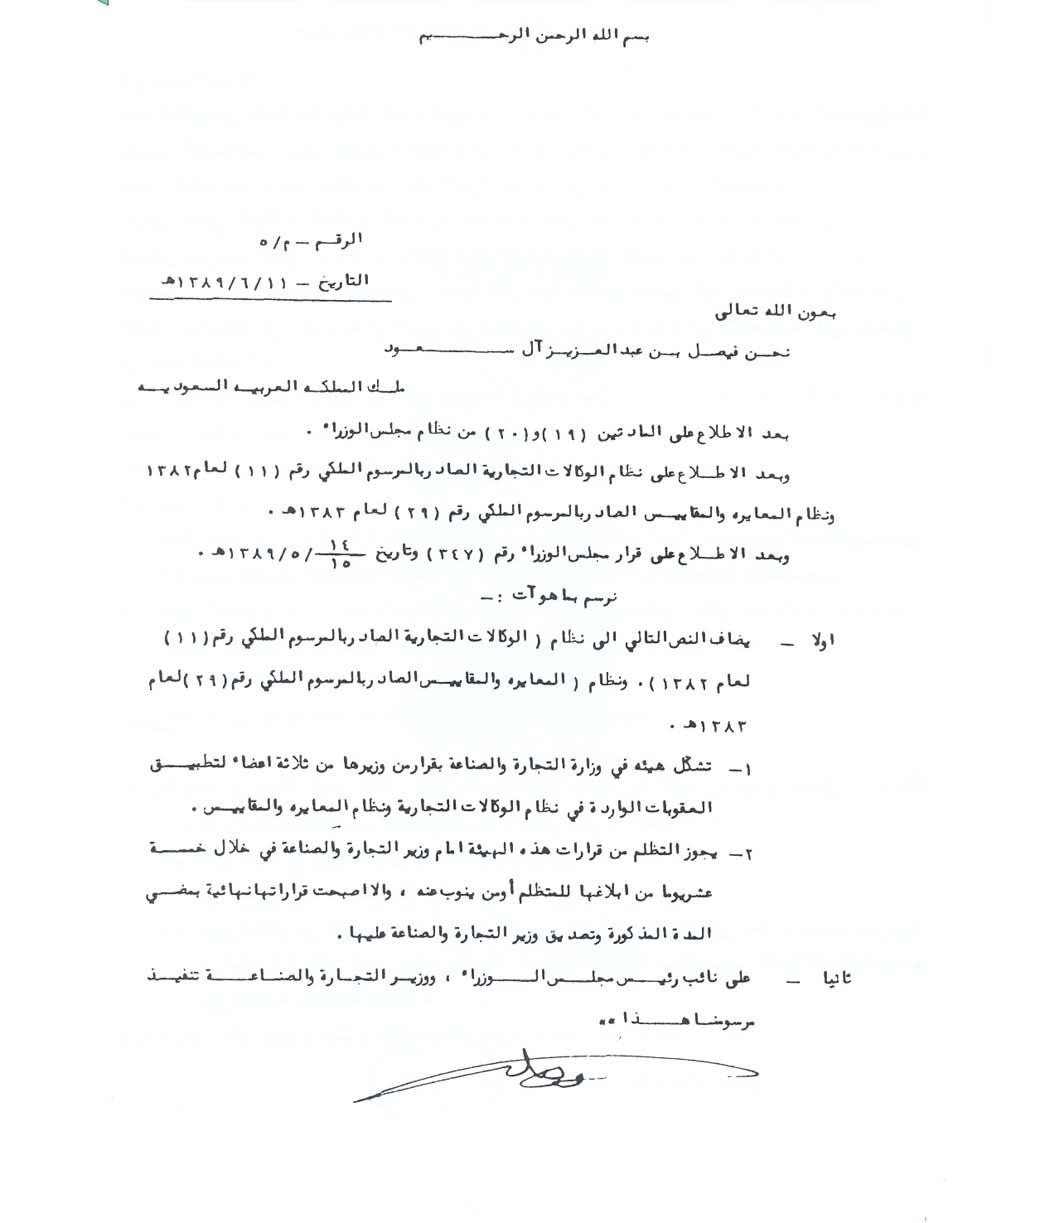 بسم الله الرحمن الرحيم
الرقم – م/٥
التاريخ – ١٣٨٩/٦/١١هـ
بعون الله تعالى
نحن فيصل بن عبدالعزيز آل سعود
ملك المملكه العربيه السعوديه
بعد الاطلاع على المادتين (١٩)و(٢٠) من نظام مجلس الوزراء .
وبعد الاطلاع على نظام الوكالات التجارية الصادر بالمرسوم الملكي رقم (١١) لعام ١٣٨٢
ونظام المعايره والمقاييس الصادر بالمرسوم الملكي رقم (٢٩) لعام ١٣٨٣هـ .
وبعد الاطلاع على قرار مجلس الوزراء رقم (٣٤٧) وتاريخ ١٤/١٥/١٣٨٩/٥هـ .
نرسم بما هو آت :–
اولا – يضاف النص التالي الى نظام ( الوكالات التجارية الصادر بالمرسوم الملكي رقم (١١)
لعام ١٣٨٢) . ونظام ( المعايره والمقاييس الصادر بالمرسوم الملكي رقم (٢٩) لعام
١٣٨٣هـ .
١– تشكل هيئه في وزارة التجارة والصناعة بقرار من وزيرها من ثلاثة اعضاء لتطبيق
العقوبات الواردة في نظام الوكالات التجارية ونظام المعايره والمقاييس .
٢– يجوز التظلم من قرارات هذه الهيئة امام وزير التجارة والصناعة في خلال خمسة
عشر يوما من ابلاغها للمتظلم أو من ينوب عنه ، والا اصبحت قراراتها نهائية بمضي
المدة المذكورة وتصديق وزير التجارة والصناعة عليها .
ثانيا – على نائب رئيس مجلس الوزراء ، ووزير التجارة والصناعة تنفيذ
مرسومنا هذا ،،